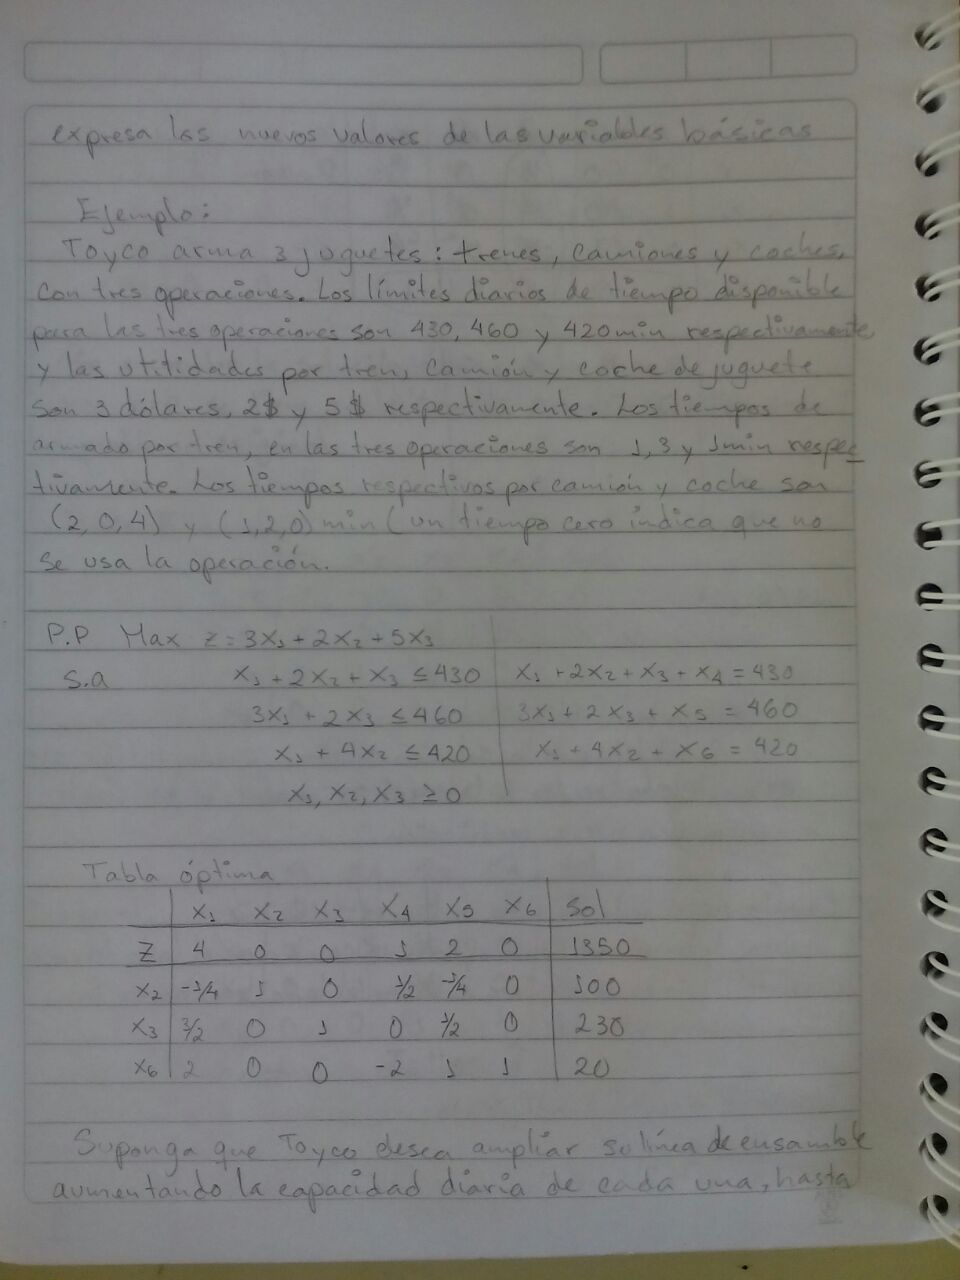 expresa los nuevos valores de las variables básicas
Ejemplo:
Toyco arma 3 juguetes: trenes, camiones y coches,
con tres operaciones. Los límites diarios de tiempo disponible
para las tres operaciones son 430, 460 y 420 min respectivamente
y las utilidades por tren, camión y coche de juguete
son 3 dólares, 2$ y 5$ respectivamente. Los tiempos de
armado por tren, en las tres operaciones son 1, 3 y 1 min respec
tivamente. Los tiempos respectivos por camión y coche son
(2, 0, 4) y (1, 2, 0) min (un tiempo cero indica que no
se usa la operación.
P.P Max Z = 3X₁ + 2X₂ + 5X₃
S.a X₁ + 2X₂ + X₃ ≤ 430 X₁ + 2X₂ + X₃ + X₄ = 430
3X₁ + 2X₃ ≤ 460 3X₁ + 2X₃ + X₅ = 460
X₁ + 4X₂ ≤ 420 X₁ + 4X₂ + X₆ = 420
X₁, X₂, X₃ ≥ 0
Tabla óptima
X₁ X₂ X₃ X₄ X₅ X₆ Sol
Z 4 0 0 1 2 0 1350
X₂ -1/4 1 0 1/2 -1/4 0 100
X₃ 3/2 0 1 0 1/2 0 230
X₆ 2 0 0 -2 1 1 20
Suponga que Toyco desea ampliar su línea de ensamble
aumentando la capacidad diaria de cada una, hasta